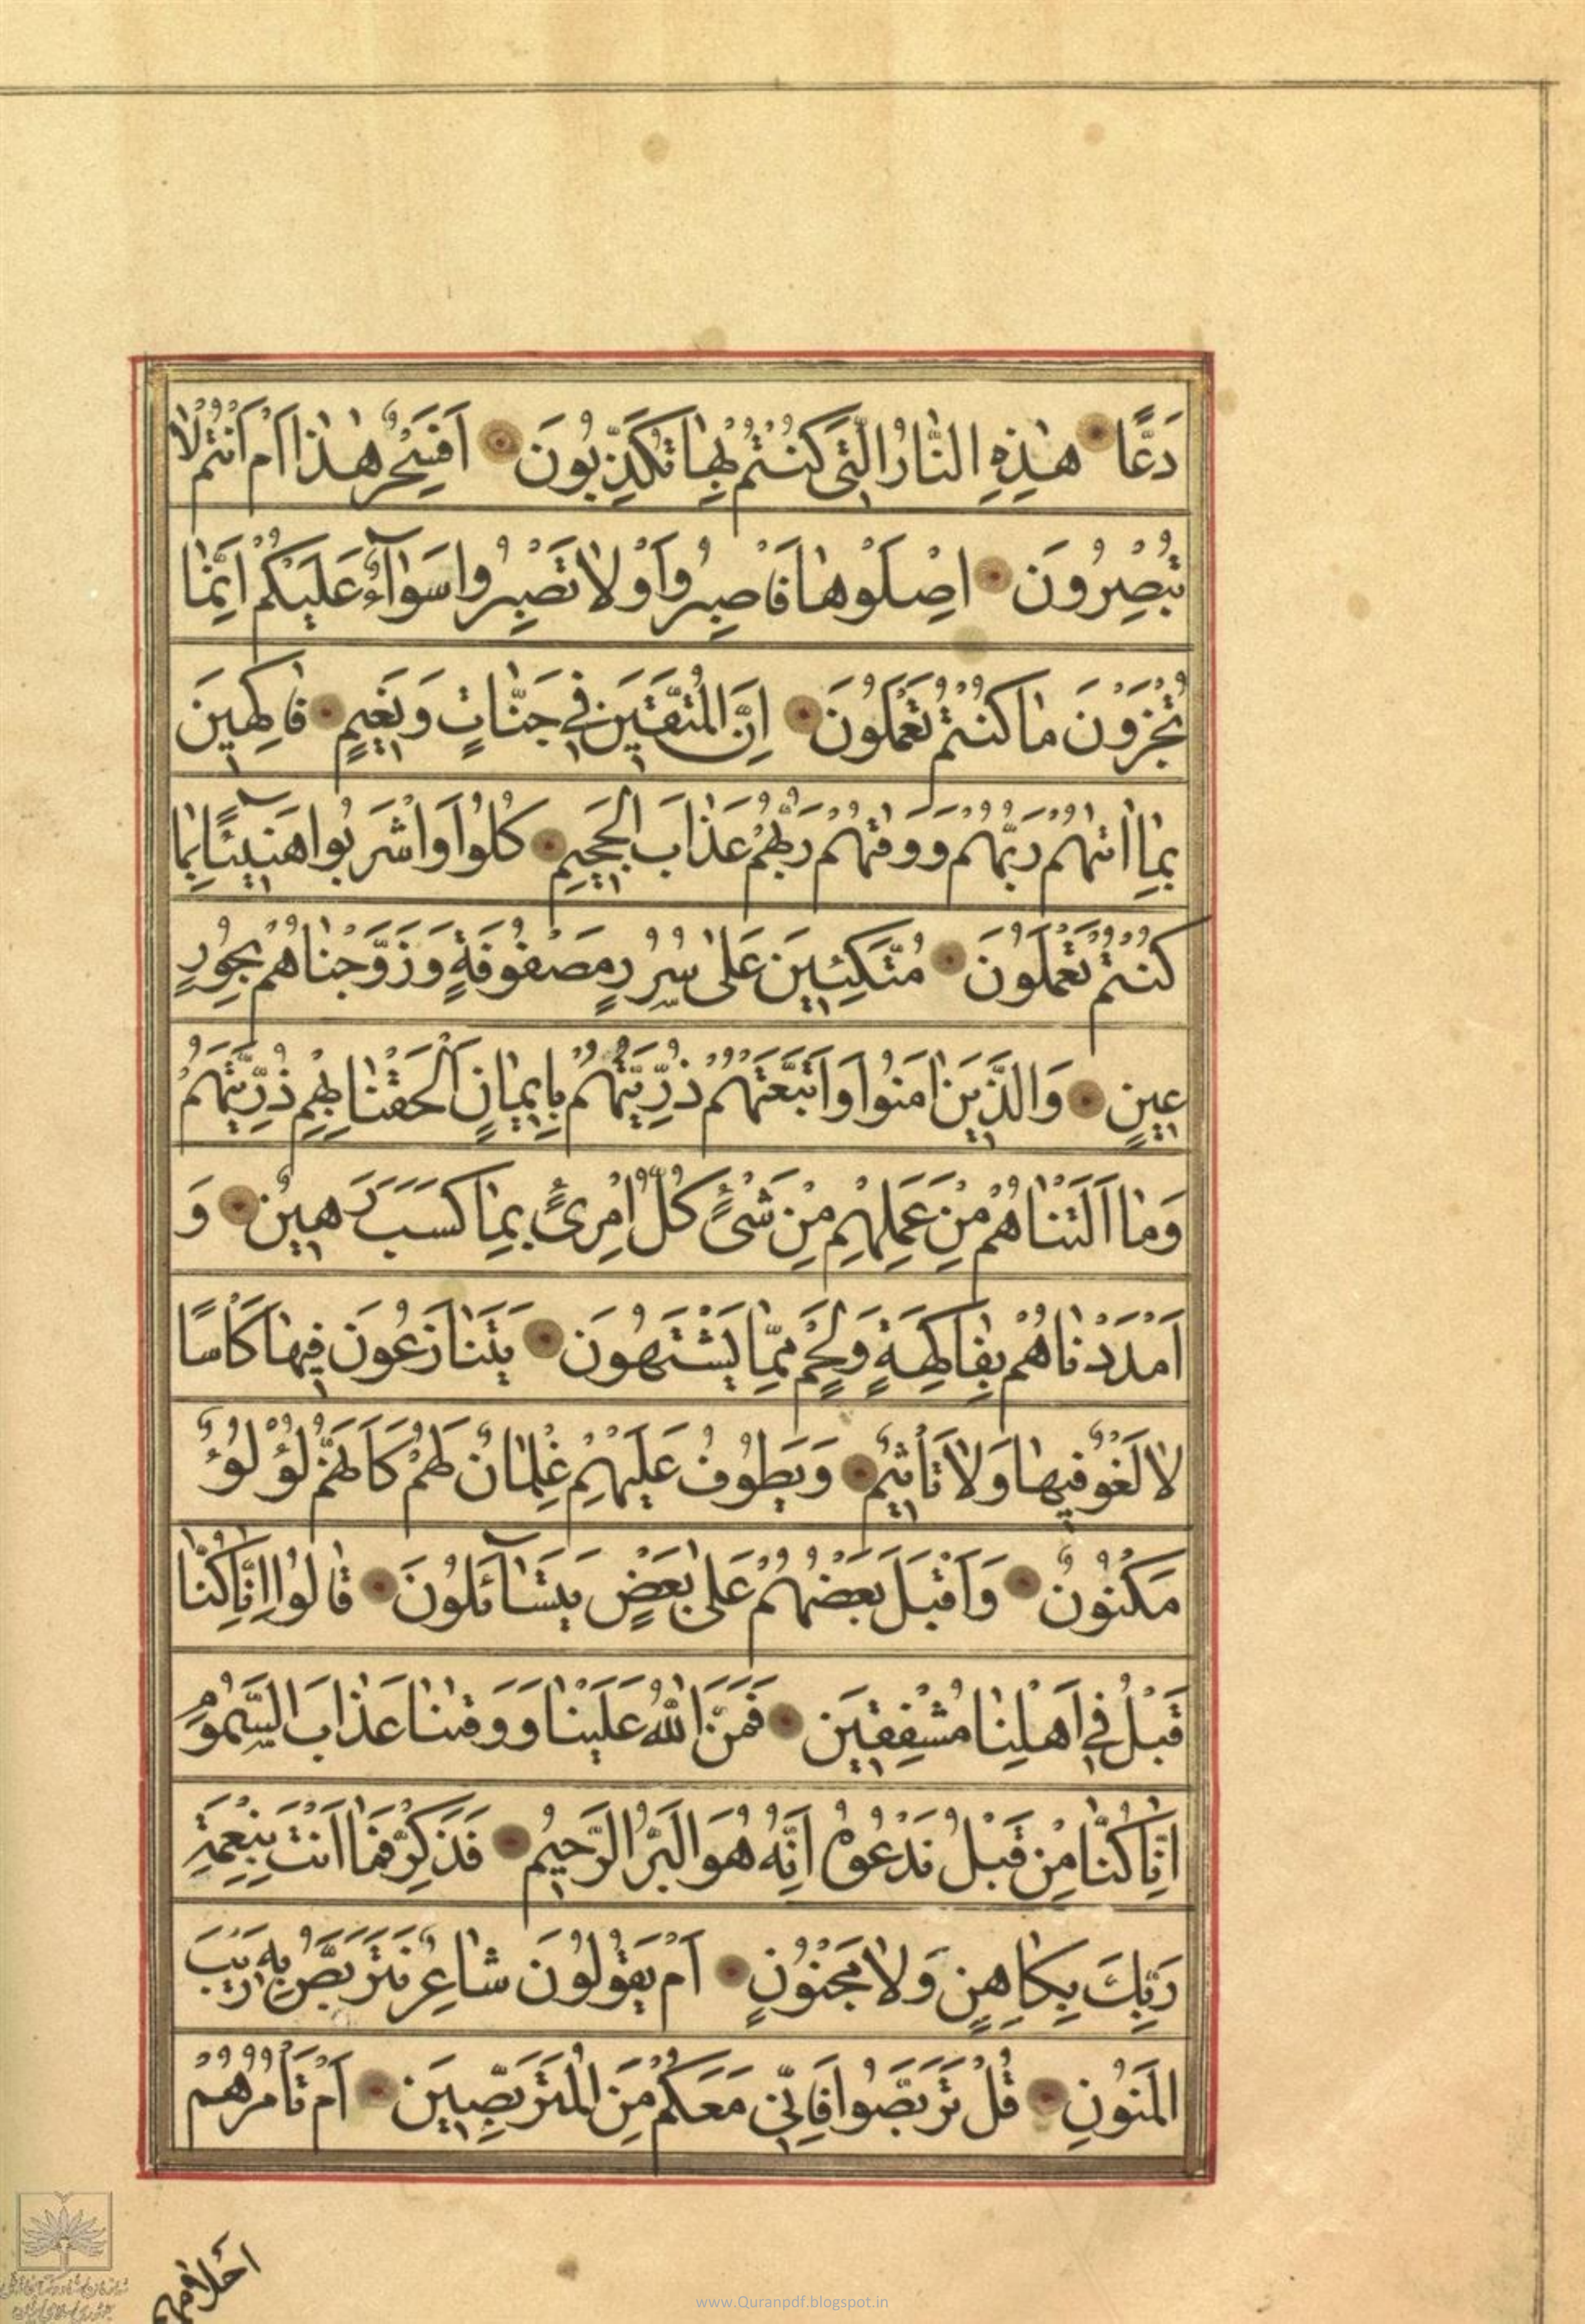 دَعًّا هٰذِهِ النَّارُ الَّتِي كُنْتُمْ بِهَا تُكَذِّبُونَ اَفَسِحْرٌ هٰذَا اَمْ اَنْتُمْ لَا
تُبْصِرُونَ اِصْلَوْهَا فَاصْبِرُوا اَوْ لَا تَصْبِرُوا سَوَآءٌ عَلَيْكُمْ اِنَّمَا
تُجْزَوْنَ مَا كُنْتُمْ تَعْمَلُونَ اِنَّ الْمُتَّقِينَ فِي جَنَّاتٍ وَنَعِيمٍ فَاكِهِينَ
بِمَا اٰتٰهُمْ رَبُّهُمْ وَوَقٰهُمْ رَبُّهُمْ عَذَابَ الْجَحِيمِ كُلُوا وَاشْرَبُوا هَنِيٓئًا بِمَا
كُنْتُمْ تَعْمَلُونَ مُتَّكِئِينَ عَلٰى سُرُرٍ مَصْفُوفَةٍ وَزَوَّجْنَاهُمْ بِحُورٍ
عِينٍ وَالَّذِينَ اٰمَنُوا وَاتَّبَعَتْهُمْ ذُرِّيَّتُهُمْ بِاِيمَانٍ اَلْحَقْنَا بِهِمْ ذُرِّيَّتَهُمْ
وَمَا اَلَتْنَاهُمْ مِنْ عَمَلِهِمْ مِنْ شَىْءٍ كُلُّ امْرِئٍ بِمَا كَسَبَ رَهِينٌ وَ
اَمْدَدْنَاهُمْ بِفَاكِهَةٍ وَلَحْمٍ مِمَّا يَشْتَهُونَ يَتَنَازَعُونَ فِيهَا كَاْسًا
لَا لَغْوٌ فِيهَا وَلَا تَاْثِيمٌ وَيَطُوفُ عَلَيْهِمْ غِلْمَانٌ لَهُمْ كَاَنَّهُمْ لُؤْلُؤٌ
مَكْنُونٌ وَاَقْبَلَ بَعْضُهُمْ عَلٰى بَعْضٍ يَتَسَآئَلُونَ قَالُوا اِنَّا كُنَّا
قَبْلُ فِي اَهْلِنَا مُشْفِقِينَ فَمَنَّ اللّٰهُ عَلَيْنَا وَوَقٰنَا عَذَابَ السَّمُومِ
اِنَّا كُنَّا مِنْ قَبْلُ نَدْعُوهُ اِنَّهُ هُوَ الْبَرُّ الرَّحِيمُ فَذَكِّرْ فَمَا اَنْتَ بِنِعْمَةِ
رَبِّكَ بِكَاهِنٍ وَلَا مَجْنُونٍ اَمْ يَقُولُونَ شَاعِرٌ نَتَرَبَّصُ بِهِ رَيْبَ
الْمَنُونِ قُلْ تَرَبَّصُوا فَاِنِّي مَعَكُمْ مِنَ الْمُتَرَبِّصِينَ اَمْ تَاْمُرُهُمْ
احلامهم
www.Quranpdf.blogspot.in